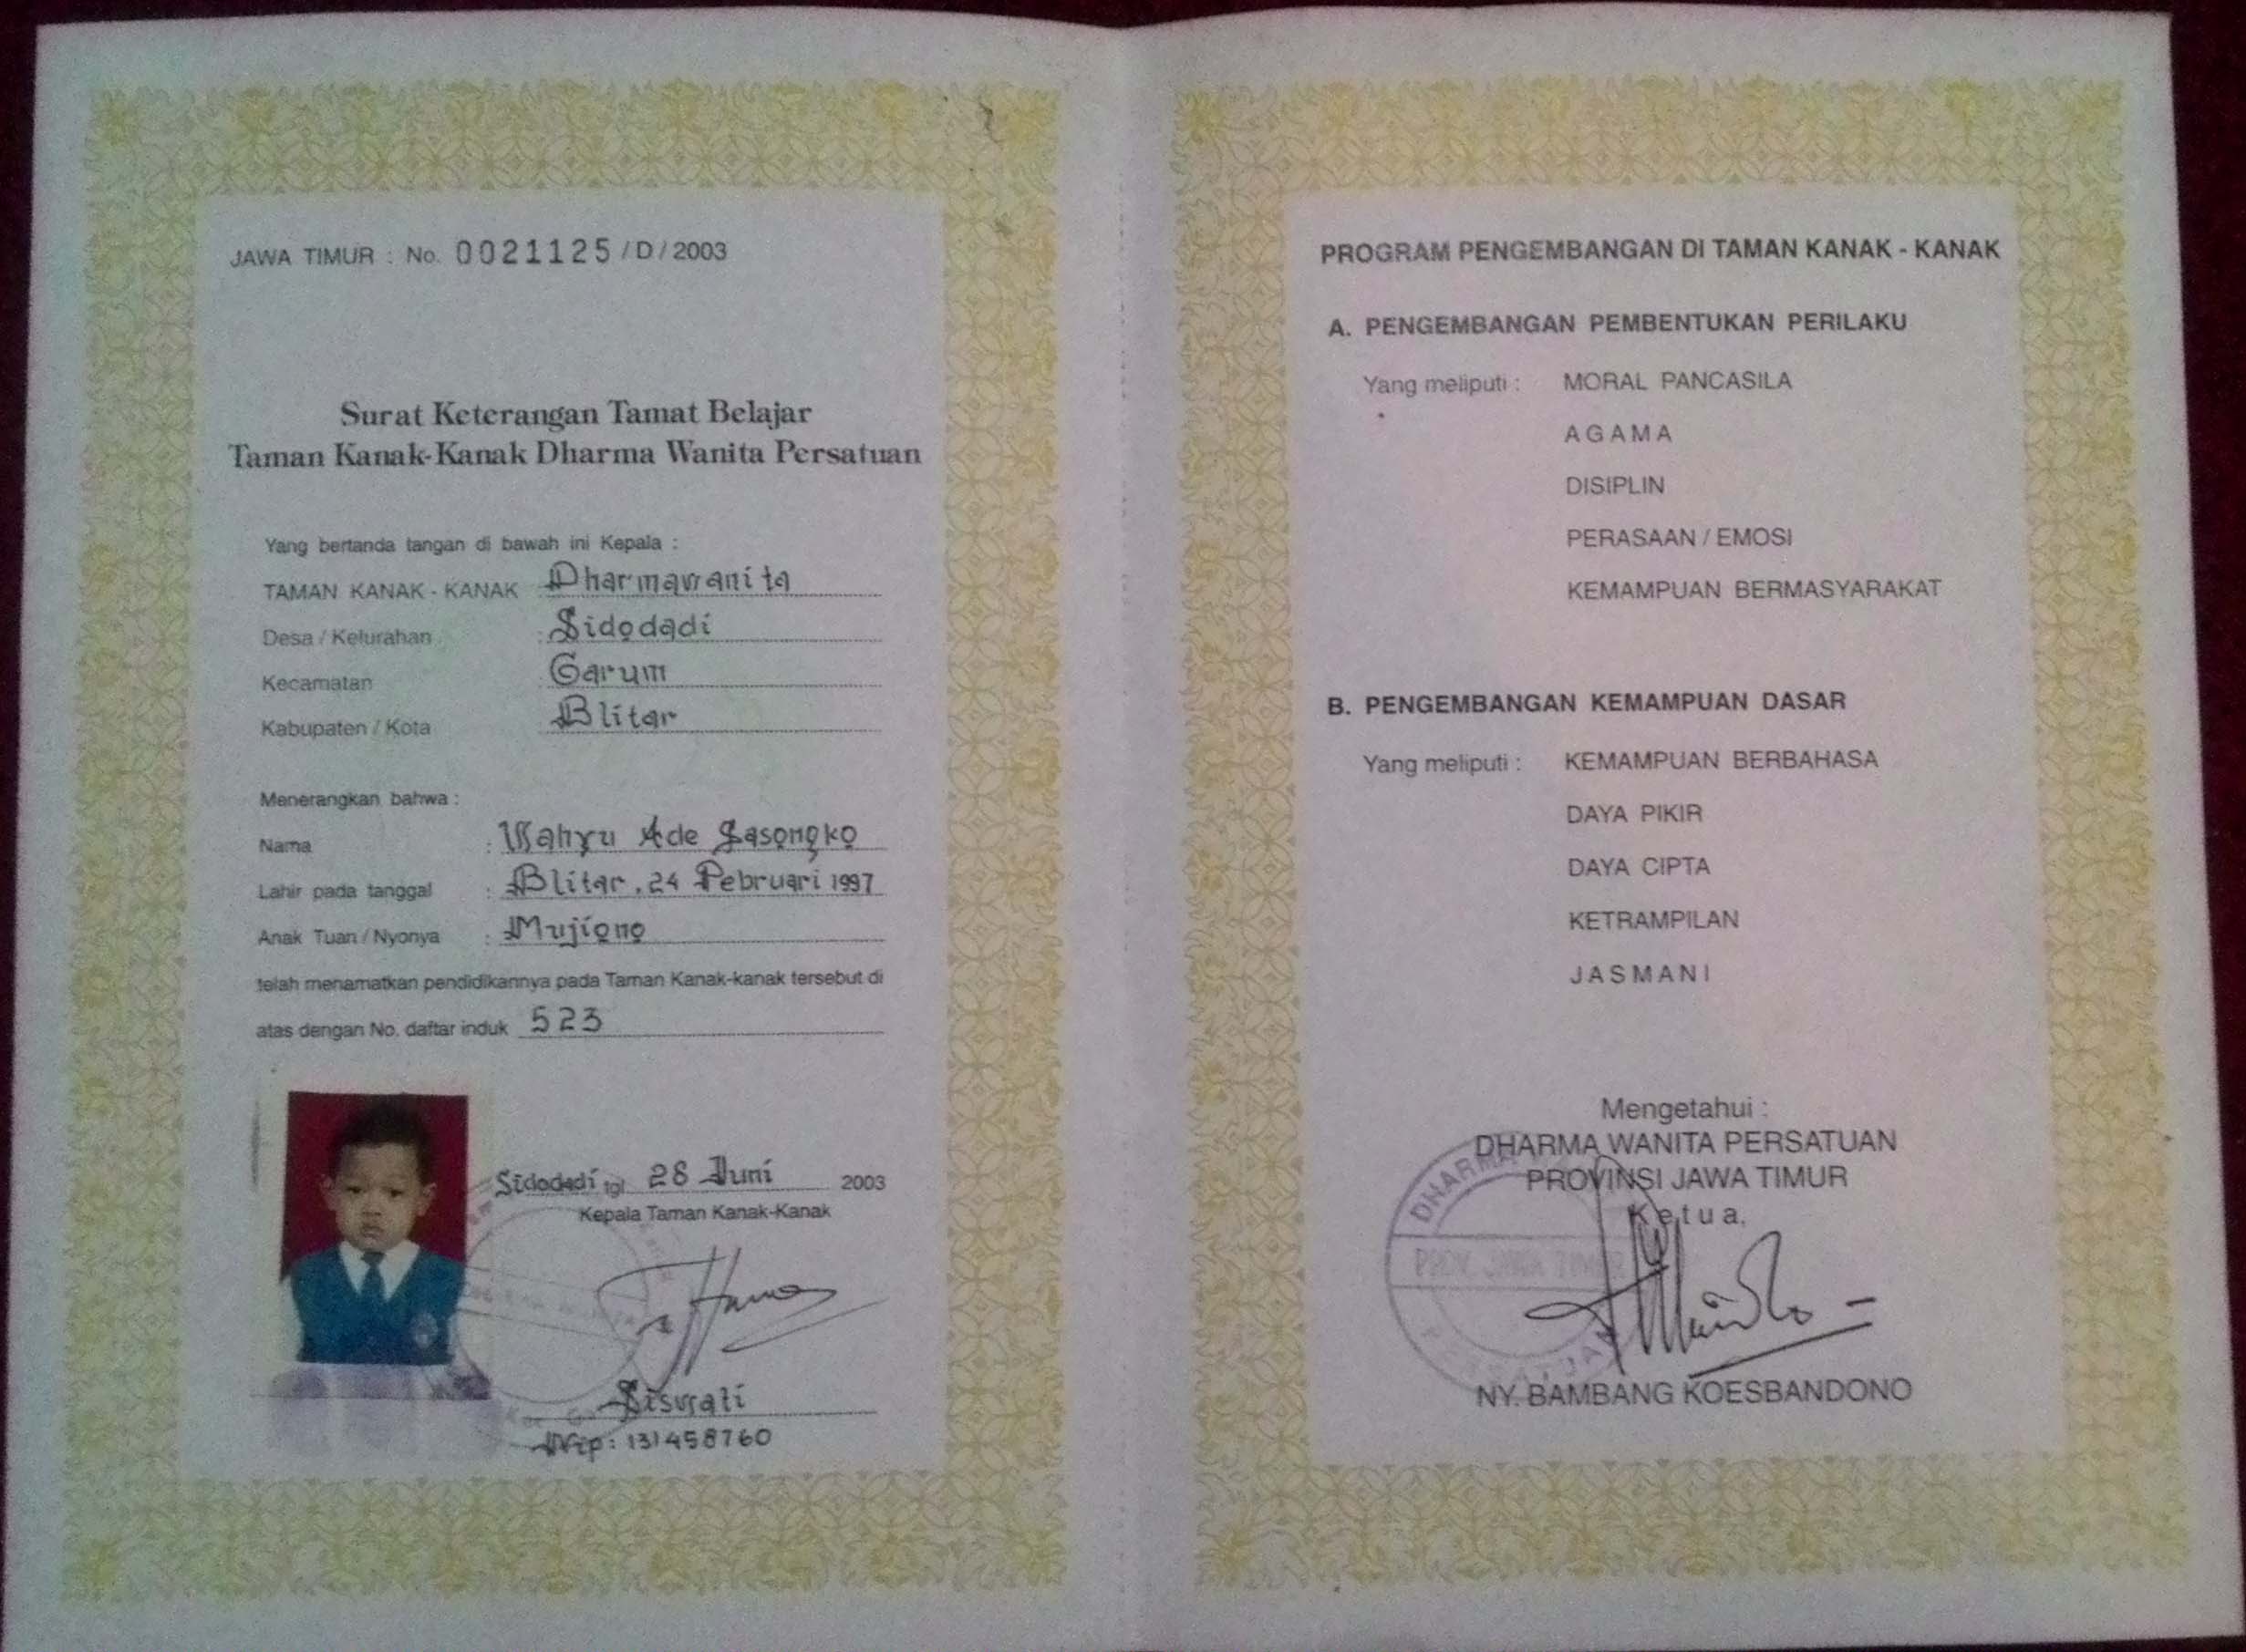 JAWA TIMUR : No. 0021125 / D / 2003
Surat Keterangan Tamat Belajar
Taman Kanak-Kanak Dharma Wanita Persatuan
Yang bertanda tangan di bawah ini Kepala :
TAMAN KANAK - KANAK Dharmawanita
Desa / Kelurahan : Sidodadi
Kecamatan : Garum
Kabupaten / Kota : Blitar
Menerangkan bahwa :
Nama : Wahyu Ade Sasongko
Lahir pada tanggal : Blitar, 24 Pebruari 1997
Anak Tuan / Nyonya : Mujiono
telah menamatkan pendidikannya pada Taman Kanak-kanak tersebut di
atas dengan No. daftar induk 523
Sidodadi tgl 28 Juni 2003
Kepala Taman Kanak-Kanak
Siswati
Nip: 131458760
PROGRAM PENGEMBANGAN DI TAMAN KANAK - KANAK
A. PENGEMBANGAN PEMBENTUKAN PERILAKU
Yang meliputi : MORAL PANCASILA
AGAMA
DISIPLIN
PERASAAN / EMOSI
KEMAMPUAN BERMASYARAKAT
B. PENGEMBANGAN KEMAMPUAN DASAR
Yang meliputi : KEMAMPUAN BERBAHASA
DAYA PIKIR
DAYA CIPTA
KETRAMPILAN
JASMANI
Mengetahui :
DHARMA WANITA PERSATUAN
PROVINSI JAWA TIMUR
Ketua,
DHARMA
PROV. JAWA TIMUR
PERSATUAN
NY. BAMBANG KOESBANDONO